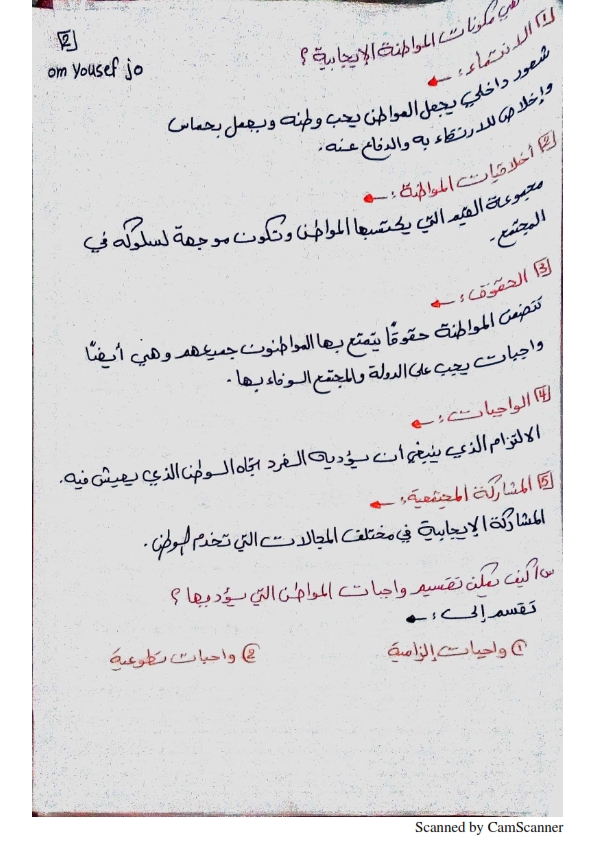 2
om Yousef jo
هي مكونات المواطنة الإيجابية؟
1) الانتماء:
شعور داخلي يجعل المواطن يحب وطنه ويعمل بحماس
وإخلاص للارتقاء به والدفاع عنه.
2) أخلاقيات المواطنة:
مجموعة القيم التي يكتسبها المواطن وتكون موجهة لسلوكه في
المجتمع.
3) الحقوق:
تتضمن المواطنة حقوقًا يتمتع بها المواطنون جميعهم وهي أيضًا
واجبات يجب على الدولة والمجتمع الوفاء بها.
4) الواجبات:
الالتزام الذي ينبغي أن يؤديه الفرد تجاه الوطن الذي يعيش فيه.
5) المشاركة المجتمعية:
المشاركة الإيجابية في مختلف المجالات التي تخدم الوطن.
س/ كيف يمكن تقسيم واجبات المواطن التي يؤديها؟
تقسم إلى:
1) واجبات إلزامية 2) واجبات تطوعية
Scanned by CamScanner